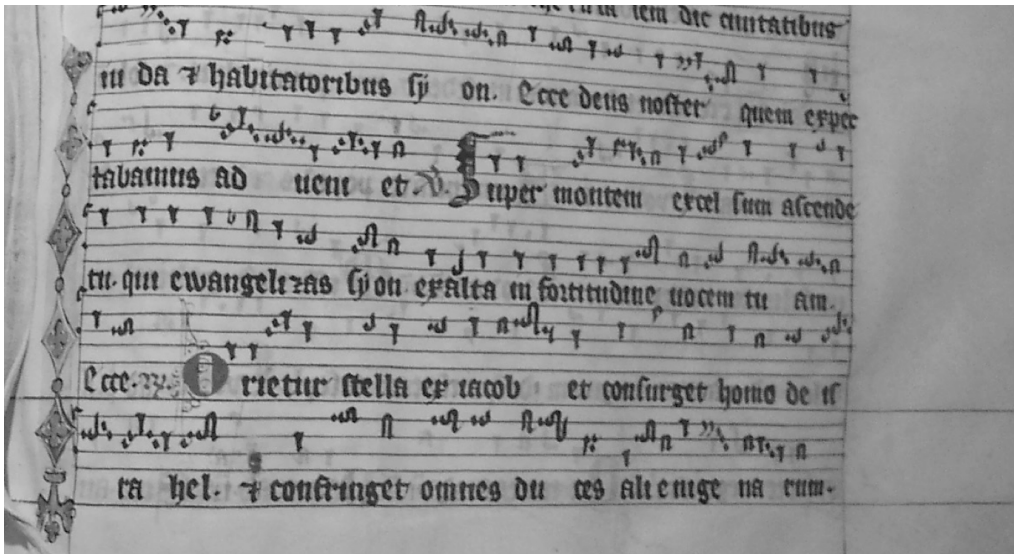 tem dic ciuitatibus
iu da ⁊ habitatoribus sÿ on. Ecce deus noster quem expec
tabamus ad ueni et. V. Super montem excel sum ascende
tu. qui ewangelizas sÿon exalta in fortitudine uocem tu am.
Ecce. Orietur stella ex iacob et consurget homo de is
ra hel. ⁊ confringet omnes du ces ali enige na rum.